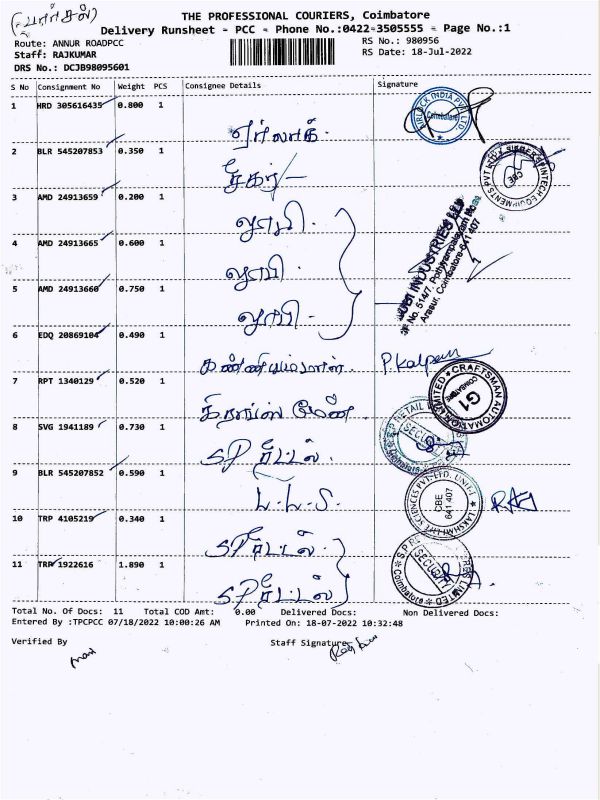 (பார்சல்)
THE PROFESSIONAL COURIERS, Coimbatore
Delivery Runsheet - PCC - Phone No.:0422-3505555 - Page No.:1
Route: ANNUR ROADPCC
RS No.: 980956
Staff: RAJKUMAR
RS Date: 18-Jul-2022
DRS No.: DCJB98095601
S No Consignment No Weight PCS Consignee Details Signature
1 HRD 305616435 0.800 1
AIRLOCK INDIA PVT LTD Coimbatore
ஏர்லாக்
2 BLR 545207853 0.350 1
சேகர்
CBE
3 AMD 24913659 0.200 1
லூபி
4 AMD 24913665 0.600 1
லூபி
LUBI INDUSTRIES LLP
No. 514/7, Pothiyampalayam
Arasur, Coimbatore-641 407
5 AMD 24913660 0.750 1
லூபி
6 EDQ 20869104 0.490 1
கண்ணியம்மாள். P. Kalpana
7 RPT 1340129 0.520 1
CRAFTSMAN AUTOMATION LIMITED G1 COIMBATORE
8 SVG 1941189 0.730 1
SP ரீட்டல்
SECURITY
9 BLR 545207852 0.590 1
L.L.S.
LAKSHMI LIFE SCIENCES PVT. LTD. UNIT-I CBE 641 407
RAJ
10 TRP 4105219 0.340 1
SP ரீட்டல்
11 TRP 1922616 1.890 1
SP ரீட்டல்
SECURITY Coimbatore
Total No. Of Docs: 11 Total COD Amt: 0.00 Delivered Docs: Non Delivered Docs:
Entered By :TPCPCC 07/18/2022 10:00:26 AM Printed On: 18-07-2022 10:32:48
Verified By Staff Signature